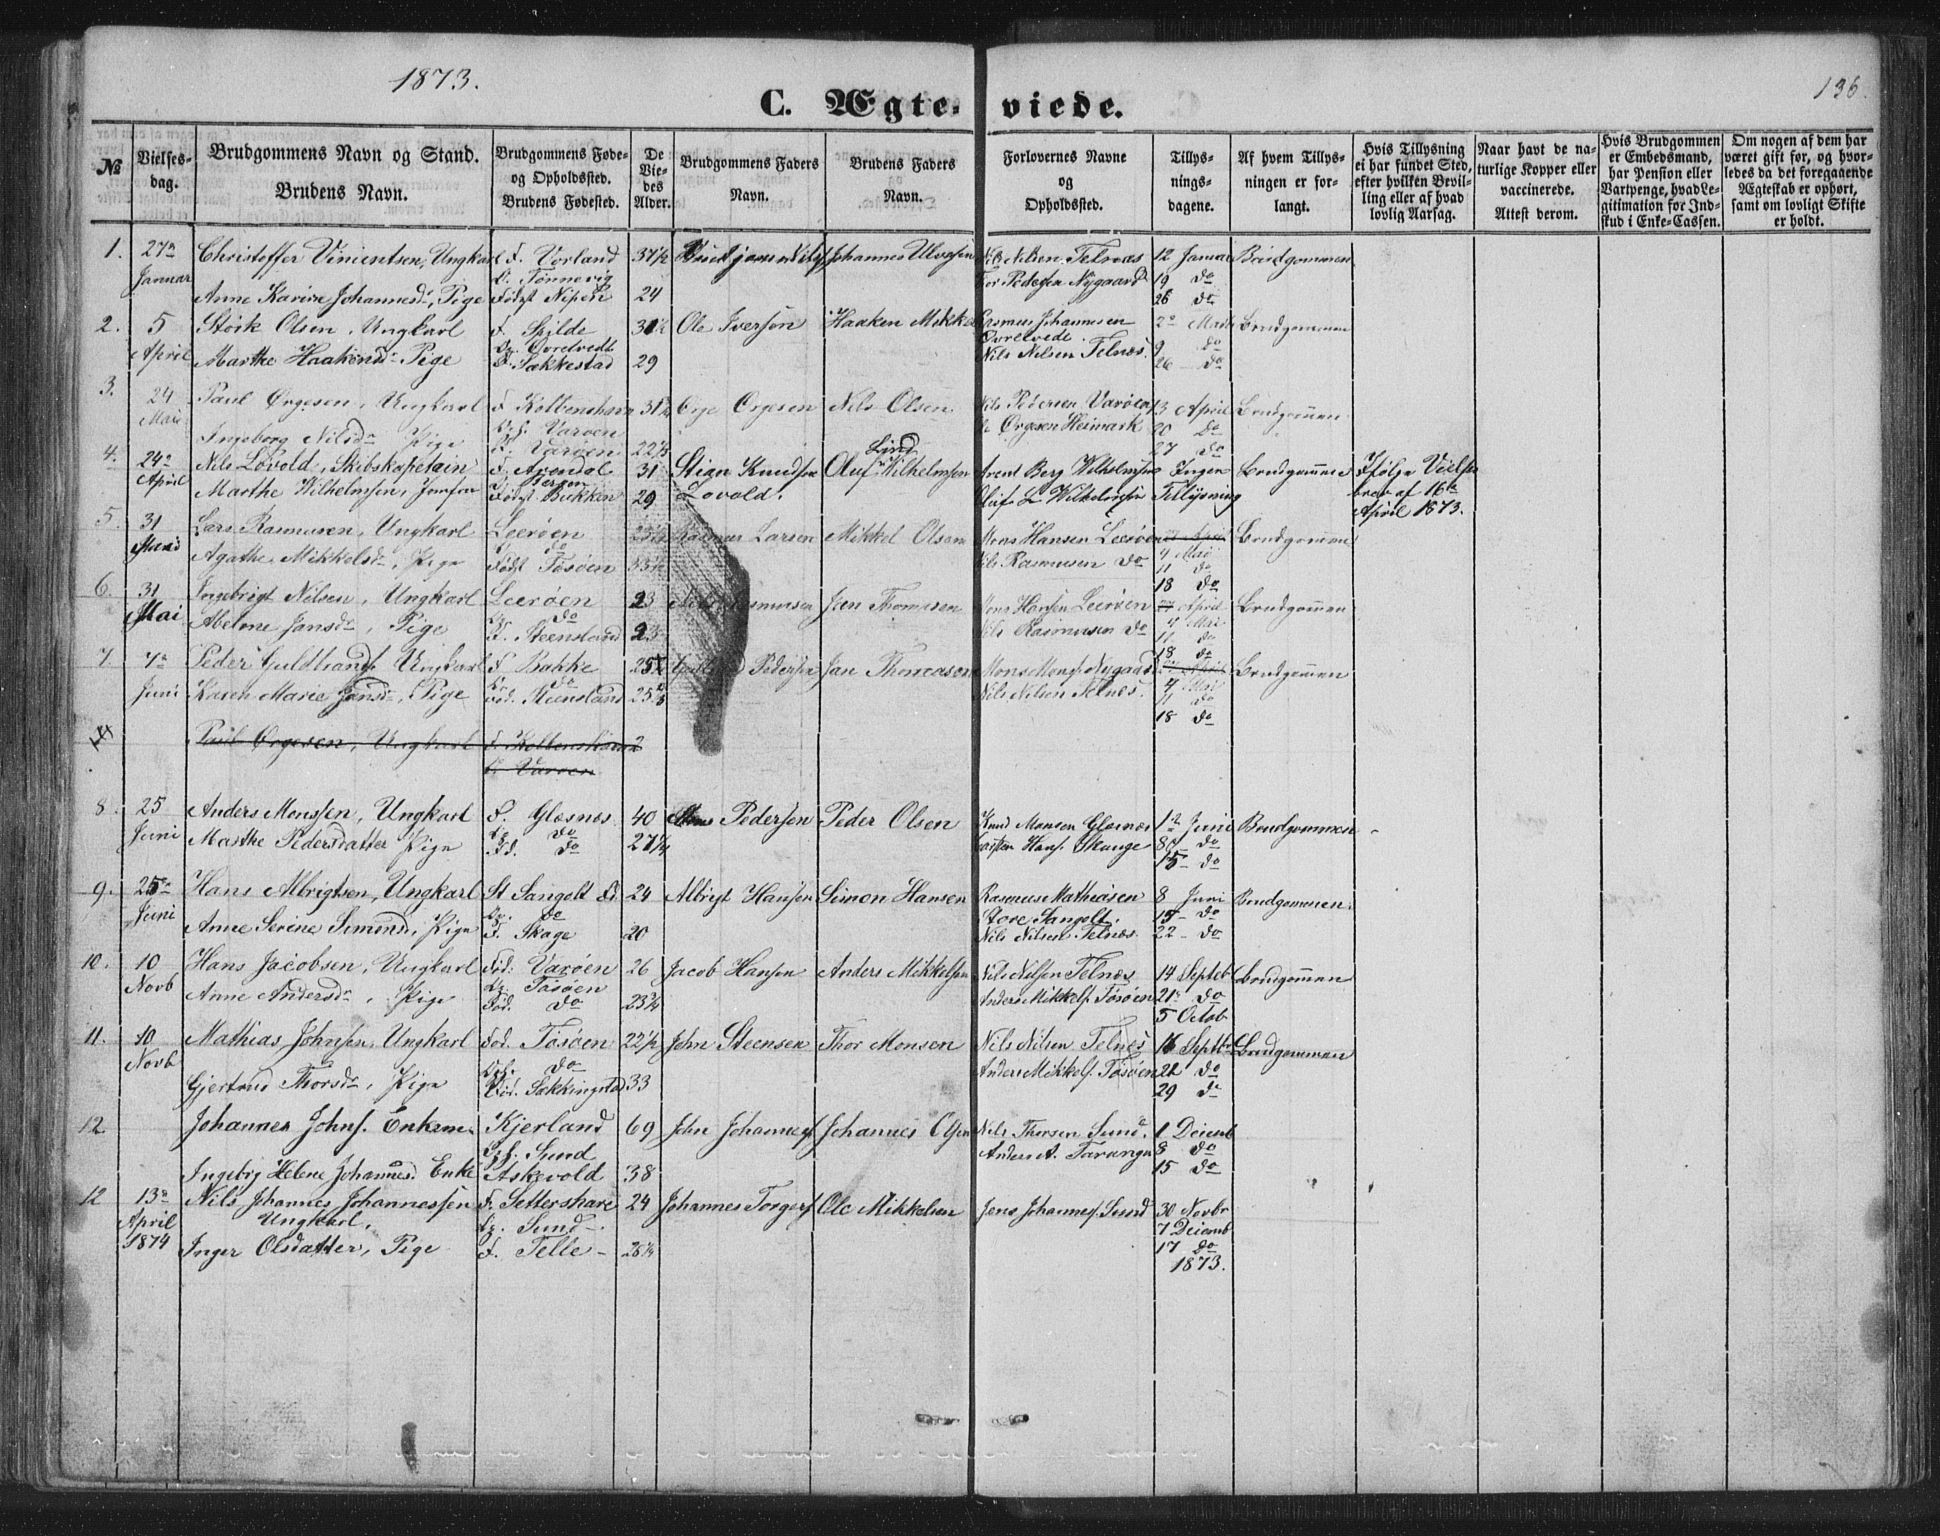 1873.
136.
C. Ægteviede.
№
Vielsesdag.
Brudgommens Navn og Stand.
Brudens Navn.
Brudgommens Føde- og Opholdssted.
Brudens Fødested.
De Viedes Alder.
Brudgommens Faders Navn.
Brudens Faders Navn.
Forlovernes Navne og Opholdssted.
Tillysningsdagene.
Af hvem Tillysningen er forlangt.
Hvis Tillysning ei har fundet Sted, efter hvilken Bevilling eller af hvad lovlig Aarsag.
Naar havt de naturlige Kopper eller vaccinerede.
Attest derom.
Hvis Brudgommen er Embedsmand, har Pension eller Vartpenge, hvad Legitimation for Indskud i Enke-Cassen.
Om nogen af dem har været gift før, og hvorledes da det foregaaende Ægteskab er ophørt, samt om lovligt Skifte er holdt.
1. 27de Januar
Christoffer Vincentsen, Ungkarl F. Vorland 37½ Johannes
O. Tønnevig
Anne Karine Johannesdr, Pige Født Nipen 24
Nils Nilsen Telnæs 12 Januar Brudgommen
Thor Pedersen Nygaard 19 do
26 do
2. 5 April
Størk Olsen, Ungkarl F. Spilde 31½ Ole Iversøn Haaken Mikkel
Øvretvedt
Marthe Haakonsdr Pige F. Sækkestad 29
Rasmus Johannesen 2 Marts Brudgommen
Øvretvedt 9 do
Nils Nilsen Telnæs. 26 do
3. 24 Mai
Paul Ørgesen, Ungkarl F. Kolbenshavn 31½ Ørge Ørgesen Nils Olsen
Varøen
Ingeborg Nilsdr Pige F. Varøen 22½
Nils Pedersen Varøen 13 April Brudgommen
Ørgesen Heimark 20 do
27 do
4. 24de April
Nils Løvold, Skibskapetain F. Arendal 31 Stian Knudsen Løvold. Oluf Lind Wilhelmsen
Marthe Wilhelmsen, Jomfru Født Bekken 29
Arent Berg Wilhelmsen Ingen Tillysning Brudgommen Ifølge Vielsesbrev af 16de April 1873.
Oluf L. Wilhelmsen
5. 31 Mai
Lars Rasmusen, Ungkarl Leerøen Rasmus Larsen Mikkel Olsen
do
Agathe Mikkelsdr, Pige Født Tøsøen
Mons Hansen Leerøen April Brudgommen
4 Mai
Nils Rasmusen do 11 do
18 do
6. 31 Mai
Ingebrigt Nilsen, Ungkarl Leerøen 23 Nils Rasmusen Jan Thomasen
do
Abelone Jansdr, Pige F. Steensland 23
Mons Hansen Leerøen April Brudgommen
4 Mai
Nils Rasmusen do 11 do
18 do
7. 7de Juni
Peder Guldbrands. Ungkarl F. Bakke 25½ Pedersen Jan Thomasen
do
Karen Marie Jansdr, Pige Fød. Steensland 25
Mons Mons. Nygaard April Brudgommen
4 Mai
Nils Nilsen Telnæs. 11 do
18 do
Paul Ørgesen, Ungkarl F. Kolbenshavn
Varøen
8. 25 Juni
Anders Monsen, Ungkarl F. Glæsnæs 40 Mons Pedersen Peder Olsen
do
Marthe Pedersdatter Pige Fd. do 27¼
Knud Monsen Glæsnæs 1 Juni Brudgommen
Hans. Skauge 8 do
15 do
9. 25de Juni
Hans Albrigtsen, Ungkarl St Sangolt 24 Albrigt Hansen Simon Hansen
do
Anne Serine Simonsd, Pige F. Skage 20
Rasmus Mathiasen 8 Juni Brudgommen.
Store Sangolt. 15 do
Nils Nilsen Telnæs. 22 do
10. 10 Novb
Hans Jacobsen, Ungkarl Fød: Varøen 26 Jacob Hansen Anders Mikkelsen
Tøsøen
Anne Andersdr, Pige Fød. do 23¾
Nils Nilsen Telnæs 14 Septeb Brudgommen
Anders Mikkels. Tøsøen 21 do
5 Octob
11. 10 Novb
Mathias Johnsen, Ungkarl Fød. Tøsøen 22½ John Steensen Thor Monsen
do
Gjertrud Thorsdr, Pige Fød. Sækkingstad 33
Nils Nilsen Telnæs 16 Septbr Brudgommen
Anders Mikkels. Tøsøen 22 do
29 do
12
Johannes Johns. Enkem. Kjerland 69 John Johannes. Johannes Olsen
Sund
Ingebrg Helene Johannesd. Enke Askevold 38
Nils Thorsen Sund. 1 Decemb
Anders A. Tarangr 8 do
15 do
12 13de April 1874
Nils Johannes Johannessen F. Settershave 24 Johannes Torgers. Ole Mikkelsen
Ungkarl, Sund
Inger Olsdatter, Pige F. Telle 26¼
Jens Johannes. Sund 30 Novbr
7 Decemb
17 do
1873.